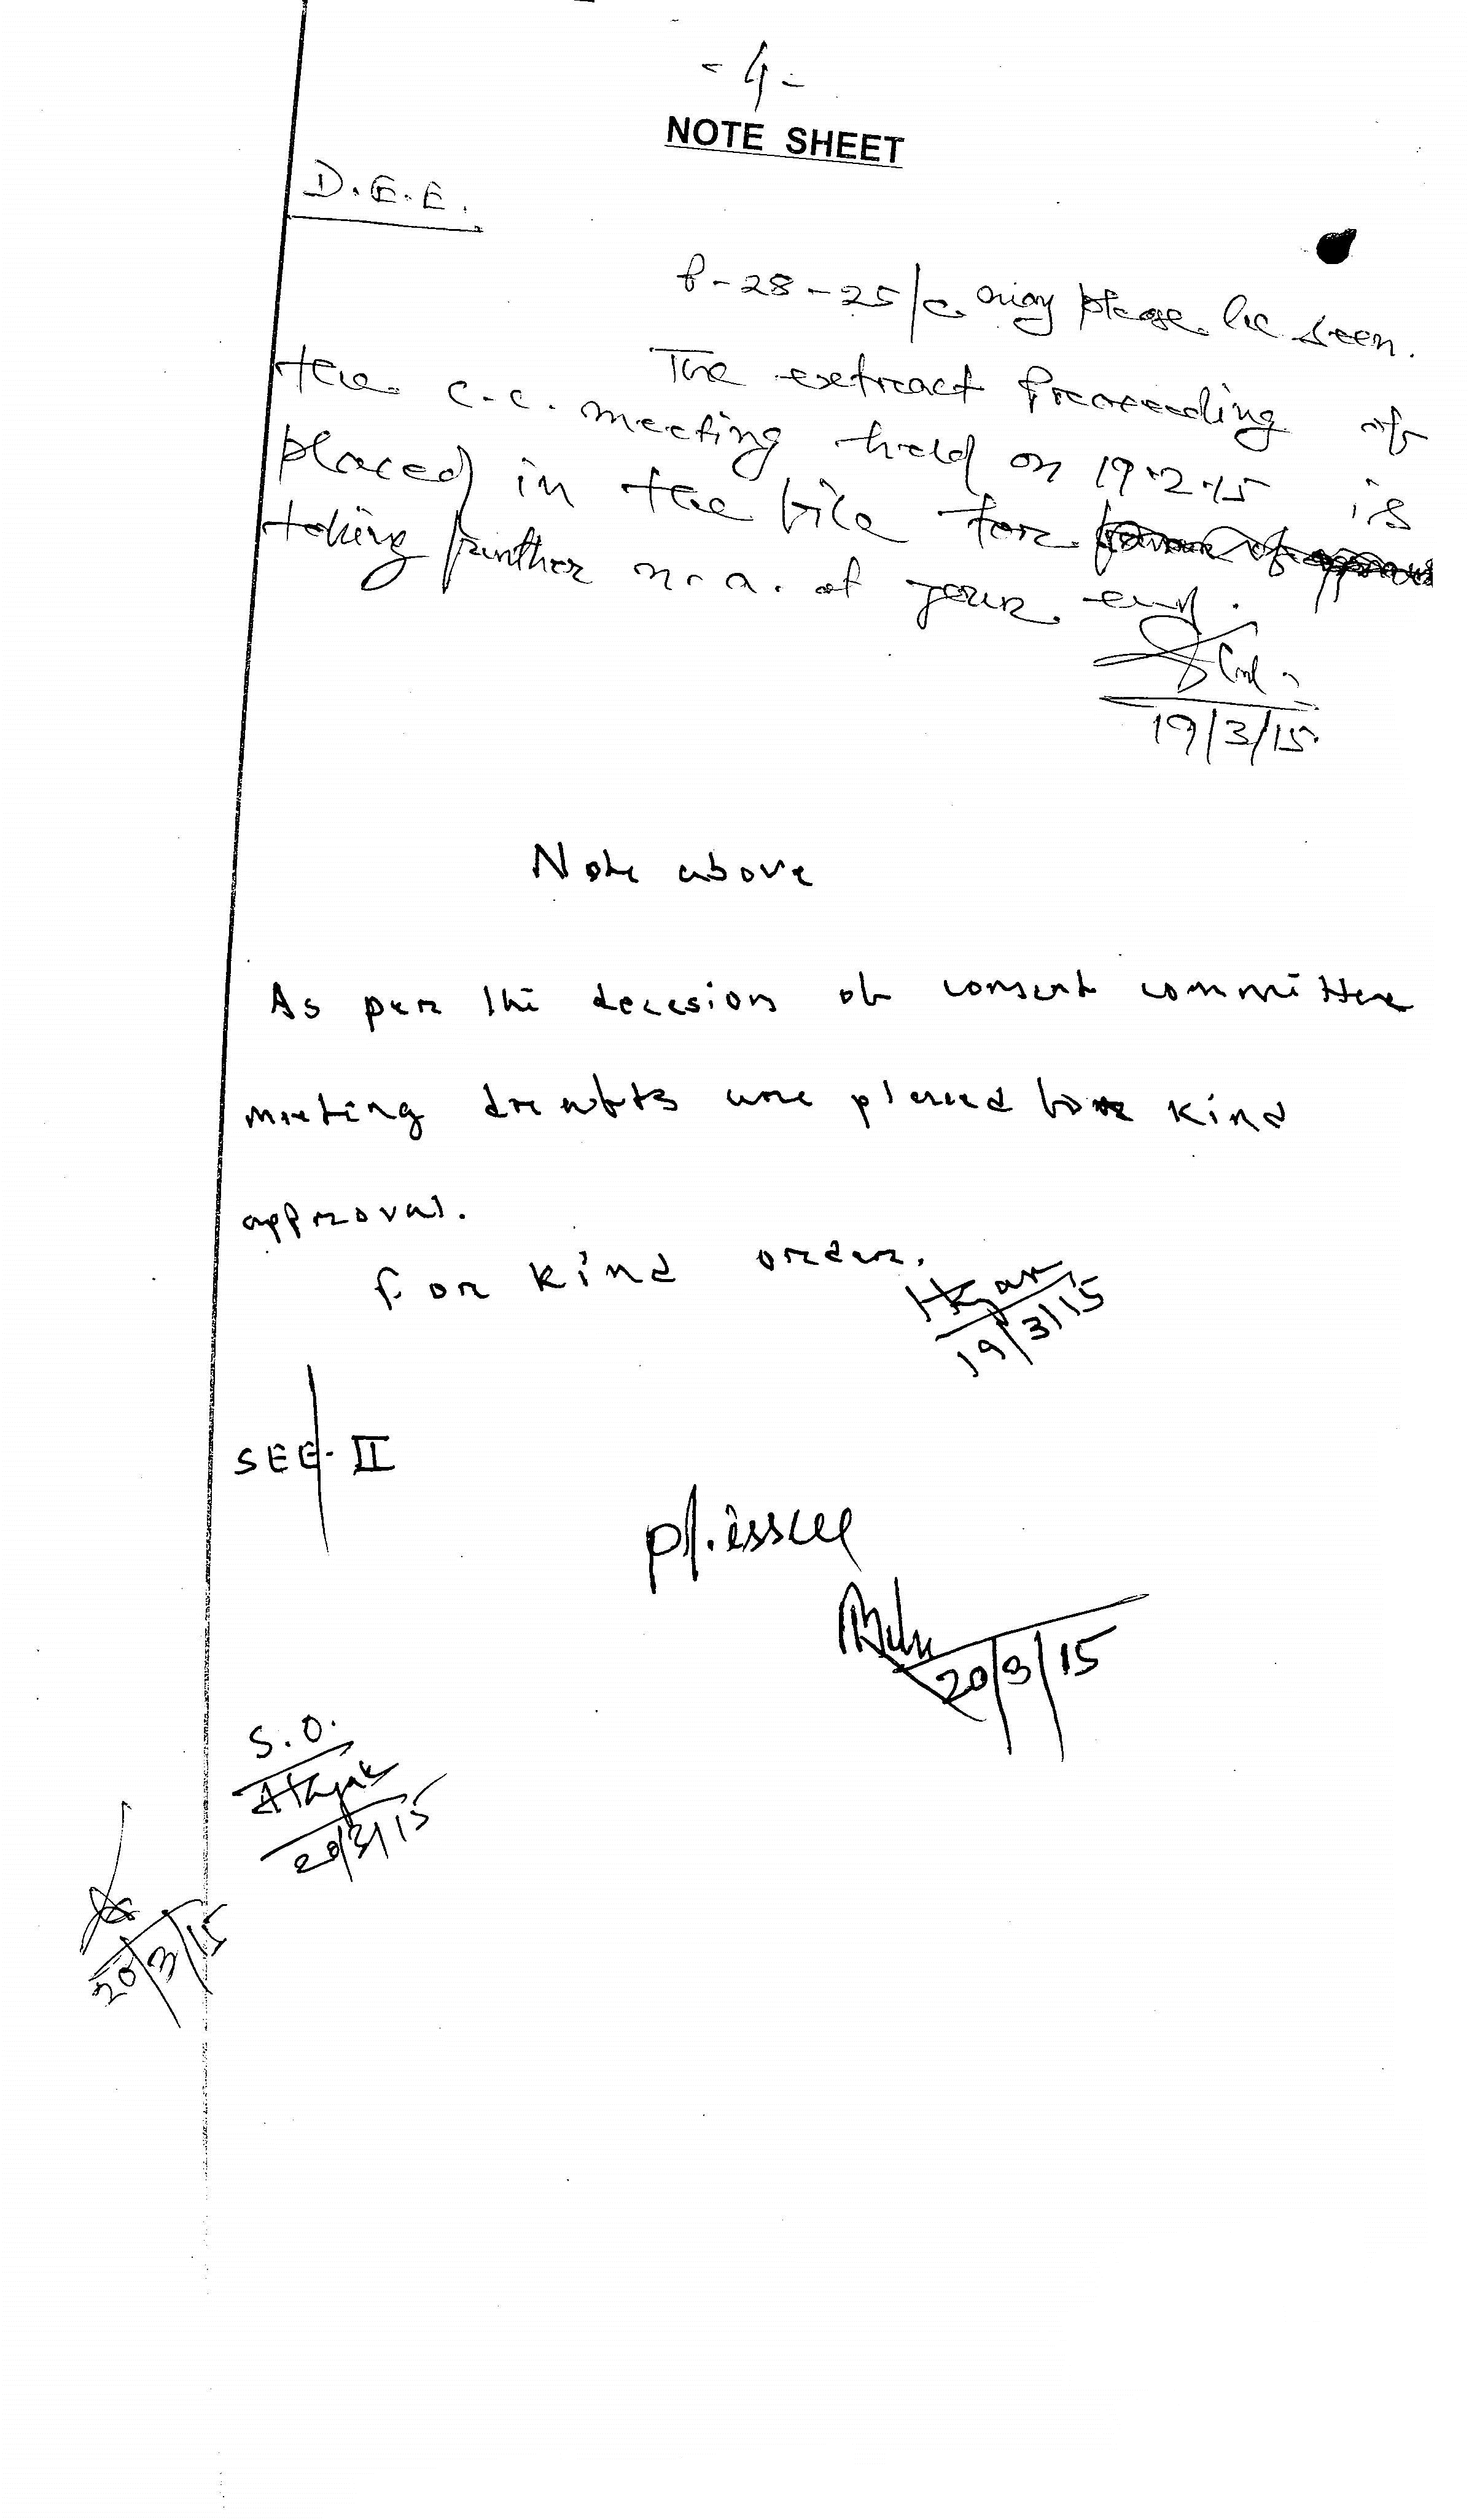 - 4 -
NOTE SHEET
D.E.E.
P-28-25/c may please be seen.
The extract Proceeding of
the C.C. meeting held on 19.2.15 is
placed in the file for
taking further n.a. at your end.
19/3/15
Note above
As per the decesion of consent committee
meeting drafts are placed for kind
approval.
For kind order.
19/3/15
SEE-II
pl. issue
20/3/15
S.O.
20/3/15
20/3/15